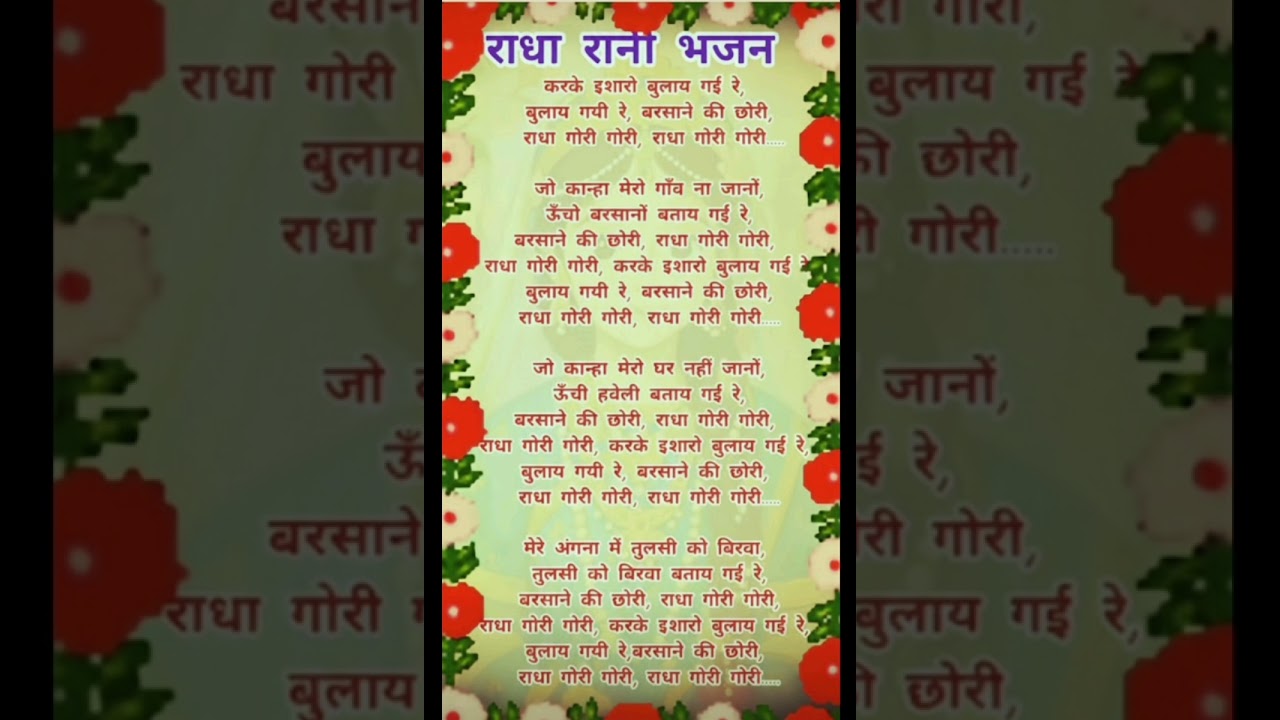 राधा रानी भजन
करके इशारो बुलाय गई रे,
बुलाय गयी रे, बरसाने की छोरी,
राधा गोरी गोरी, राधा गोरी गोरी.....
जो कान्हा मेरो गाँव ना जानों,
ऊँचो बरसानों बताय गई रे,
बरसाने की छोरी, राधा गोरी गोरी,
राधा गोरी गोरी, करके इशारो बुलाय गई रे
बुलाय गयी रे, बरसाने की छोरी,
राधा गोरी गोरी, राधा गोरी गोरी.....
जो कान्हा मेरो घर नहीं जानों,
ऊँची हवेली बताय गई रे,
बरसाने की छोरी, राधा गोरी गोरी,
राधा गोरी गोरी, करके इशारो बुलाय गई रे,
बुलाय गयी रे, बरसाने की छोरी,
राधा गोरी गोरी, राधा गोरी गोरी.....
मेरे अंगना में तुलसी को बिरवा,
तुलसी को बिरवा बताय गई रे,
बरसाने की छोरी, राधा गोरी गोरी,
राधा गोरी गोरी, करके इशारो बुलाय गई रे,
बुलाय गयी रे,बरसाने की छोरी,
राधा गोरी गोरी, राधा गोरी गोरी.....